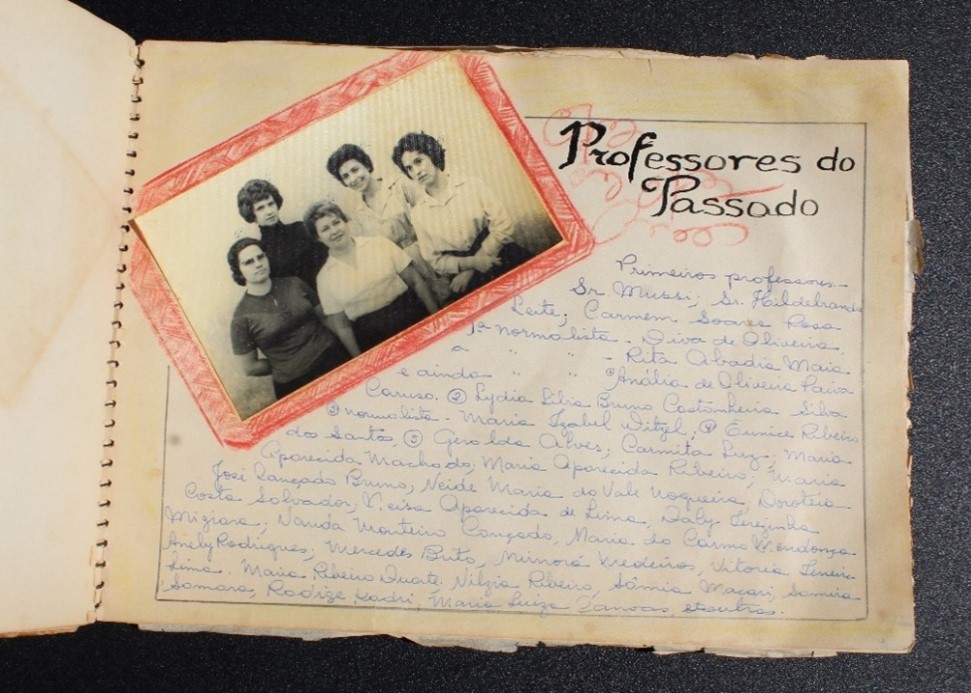 Professores do
Passado
Primeiros professores -
Sr. Mussi; Sr. Hildebrando
Leite; Carmem Soares Rosa
1ª normalista - Diva de Oliveira
a " " - Rita Abadia Maia
e ainda " " ① Anália de Oliveira Paiva
Caruso. ② Lydia Libia Bruno Castanheira Silva
③ normalista - Maria Izabel Witzel; ④ Eunice Ribeiro
dos Santos, ⑤ Geralda Alves; Carmita Luz; Maria
Aparecida Machado; Maria Aparecida Ribeiro; Maria
José Lançado Bruno; Neide Maria do Vale Nogueira; Doroteia
Costa Salvador; Neisa Aparecida de Lima, Daly Terezinha
Migiara; Vanda Monteiro Cançado, Maria do Carmo Mendonça
Anely Rodrigues; Mercedes Brito, Medeiros, Vitoria
Lima. Maria Ribeiro Duarte. Nilzia Ribeiro, Sônia Macari, Samira
Samara, Kadri, Maria Luiza